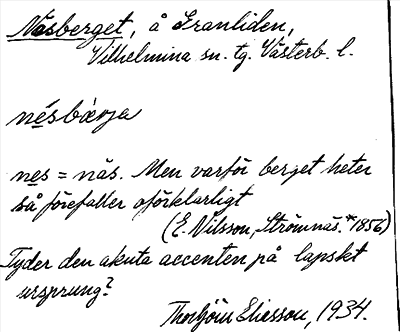 Näsberget, å Granliden,
Vilhelmina sn. tg. Västerb. l.
nésbær̥ja
nes = näs. Men varför berget heter
så förefaller oförklarligt
(E. Nilsson, Strömnäs. *1856)
Tyder den akuta accenten på lapskt
ursprung?
Thorbjörn Eliesson, 1934.